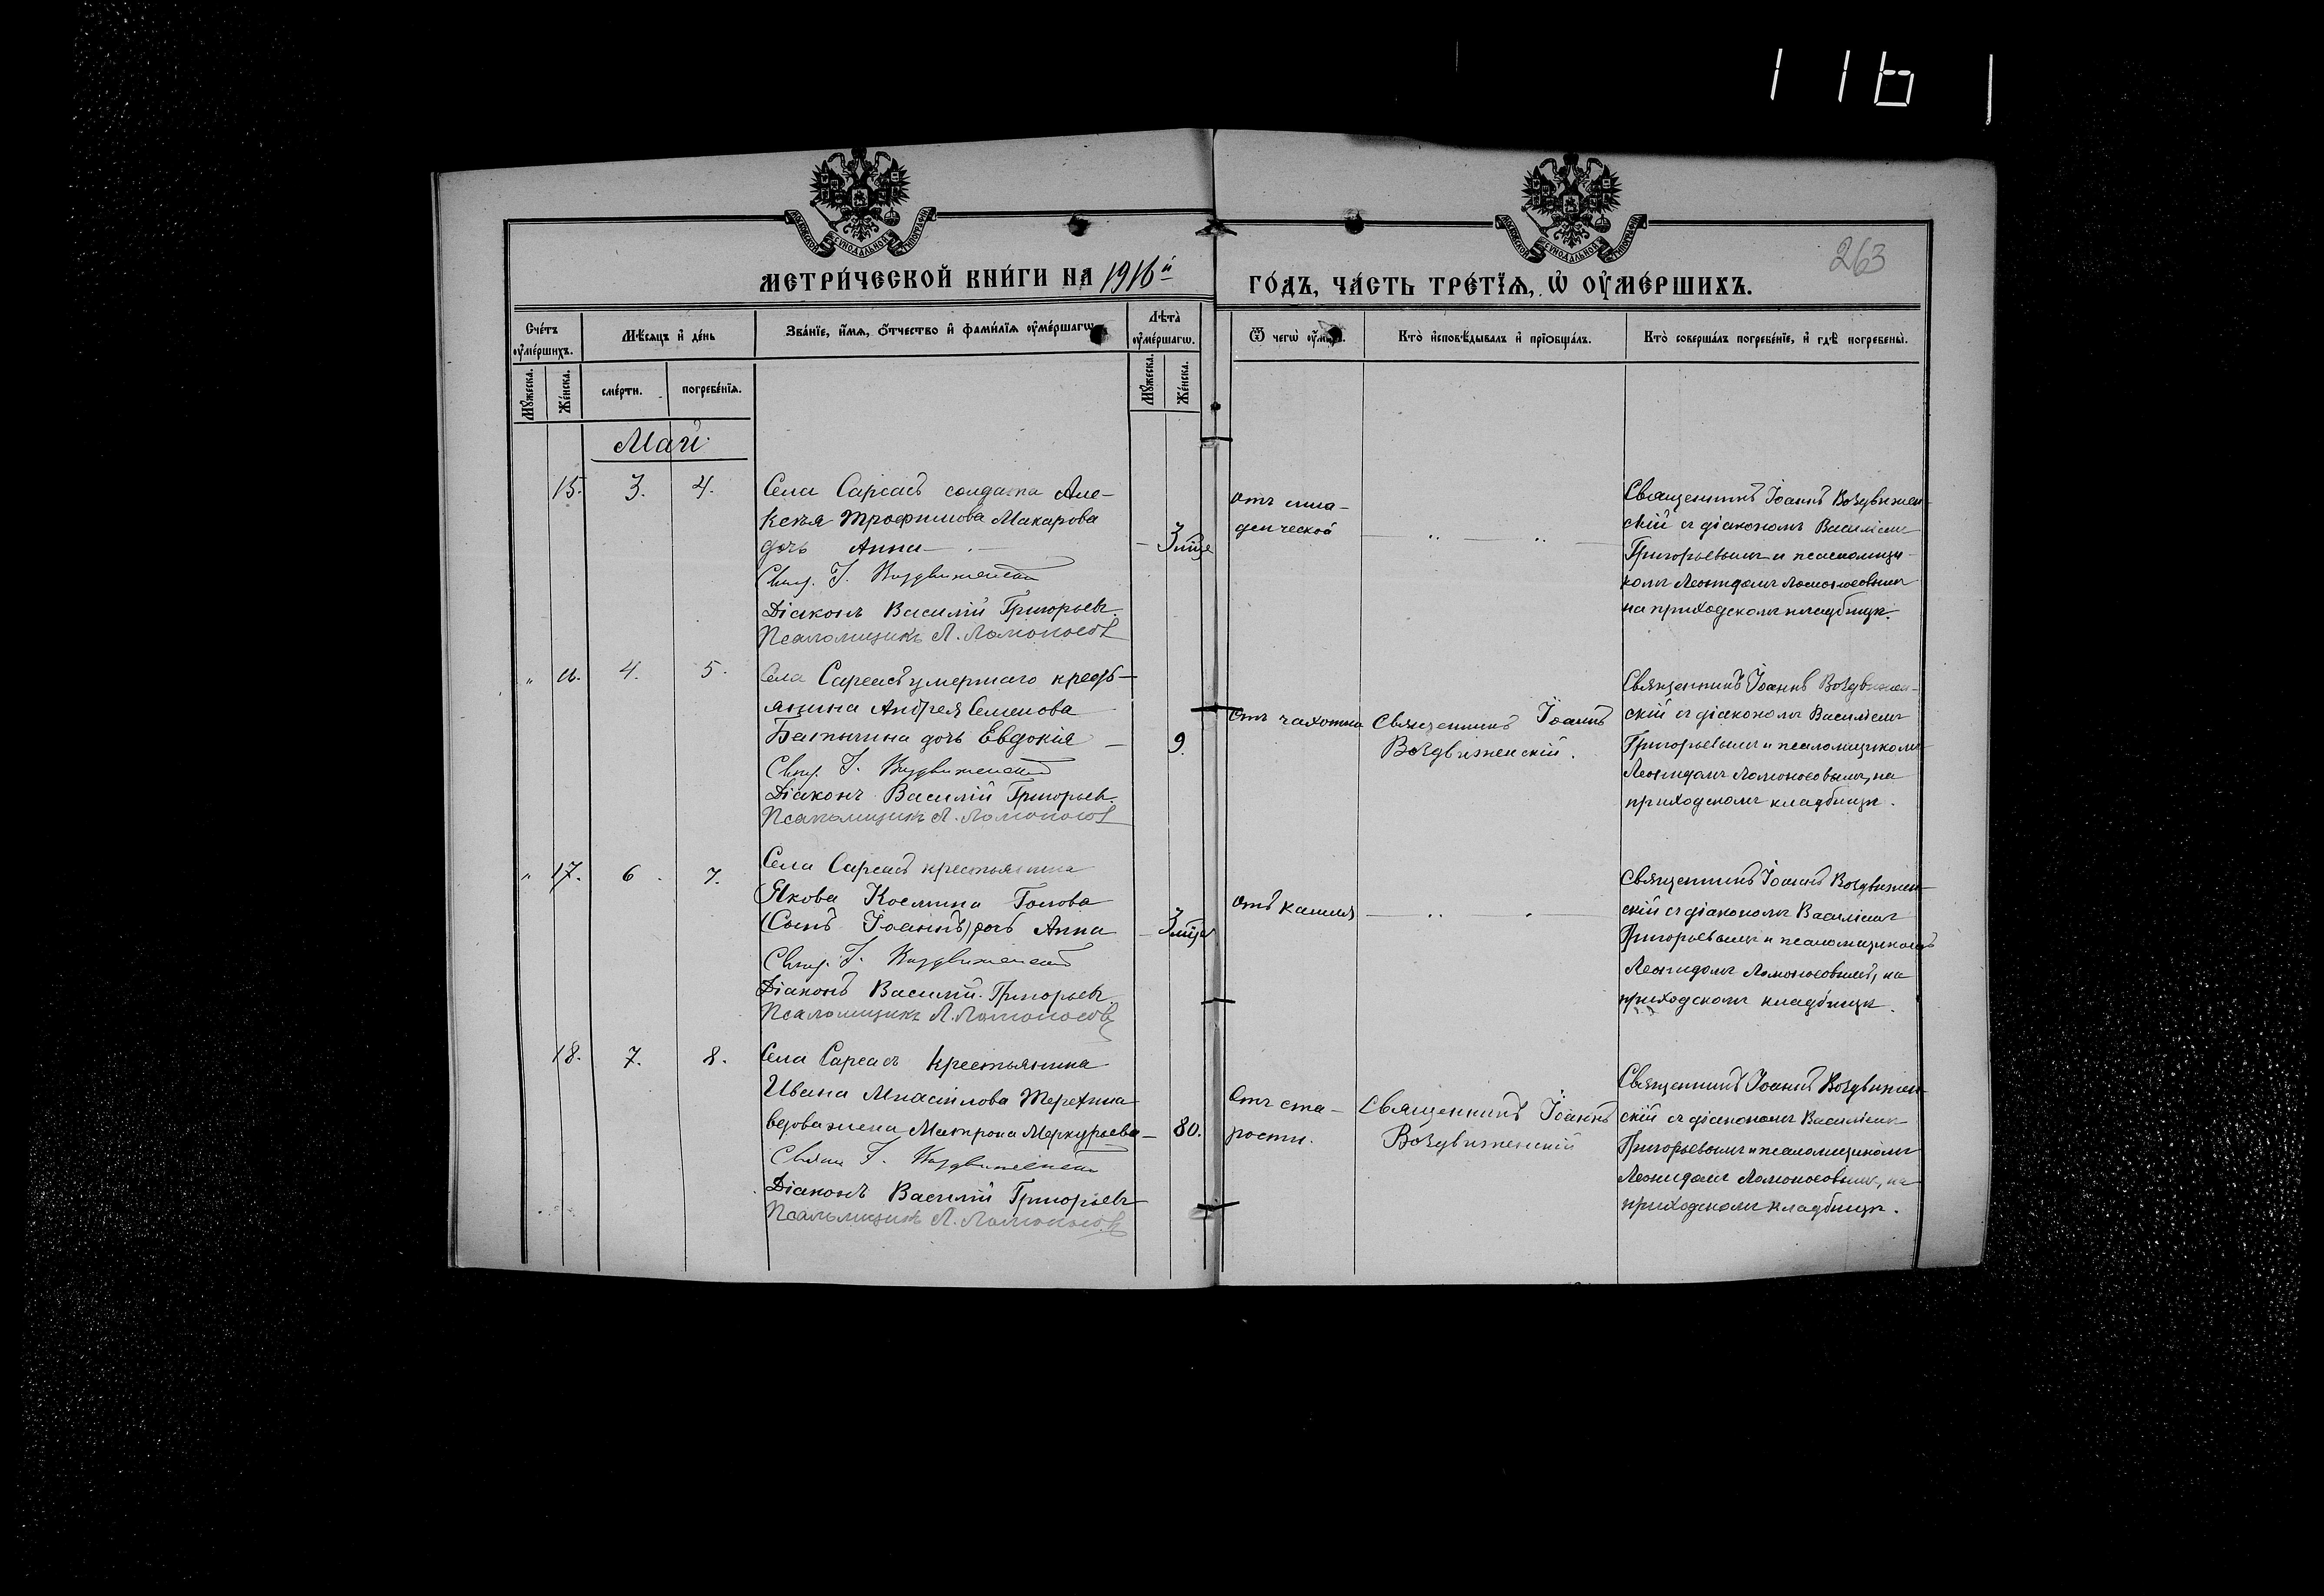 116
263
МЕТРИ́ЧЕСКОЙ КНИ́ГИ НА 1916й
ГО́ДЪ, ЧА́СТЬ ТРЕ́ТІѦ, Ѽ ОУ҆МЕ́РШИХЪ.
Сче́тъ оу҆ме́ршихъ.
Мꙋ́жеска.
Же́нска.
Мѣ́сяцъ и҆ де́нь
сме́рти.
погребе́нїѧ.
Зва́нїе, и҆́мѧ, ѻ҆́тчество и҆ фами́лїѧ оу҆ме́ршагѡ
Лѣ́та оу҆ме́ршагѡ.
Мꙋ́жеска.
Же́нска.
Ѿ чегѡ̀
Кто̀ и҆сповѣ́дывалъ и҆ прїѻбща́лъ.
Кто̀ соверша́лъ погребе́нїе, и҆ гдѣ̀ погребены̀.
Май
15.
3.
4.
Села Сарсасъ солдата Але-
ксея Трофимова Макарова
дочь Анна
Свящ. І. Воздвиженскій
Діаконъ Василій Григорьевъ.
Псаломщикъ Л. Ломоносовъ
3 мѣс
отъ мла-
денческой
Священникъ Іоаннъ Воздвижен-
скій съ діакономъ Василіемъ
Григорьевымъ и псаломщи-
комъ Леонидомъ Ломоносовымъ
на приходскомъ кладбищѣ.
4.
5.
Села Сарсасъ умершаго кресть-
янина Андрея Семенова
дочь Евдокія
Свящ. І. Воздвиженскій
Діаконъ Василій Григорьевъ.
Псаломщикъ Л. Ломоносовъ
9.
Отъ чахотки
Священникъ Іоаннъ
Воздвиженскій.
Священникъ Іоаннъ Воздвижен-
скій съ діакономъ Василіемъ
Григорьевымъ и псаломщикомъ
Леонидомъ Ломоносовымъ, на
приходскомъ кладбищѣ.
17.
6.
7.
Села Сарсасъ крестьянина
Якова Космина
(Сынъ Іоаннъ) дочь Анна
Свящ. І. Воздвиженскій
Діаконъ Василій Григорьевъ
Псаломщикъ Л. Ломоносовъ
3 мѣс
Отъ кашля
Священникъ Іоаннъ Воздвижен-
скій съ діакономъ Василіемъ
Григорьевымъ и псаломщикомъ
Леонидомъ Ломоносовымъ, на
приходскомъ кладбищѣ.
18.
7.
8.
Села Сарсасъ Крестьянина
Ивана Терехина
вдова жена Матрона Меркурьева
Священ І. Воздвиженскій
Діаконъ Василій Григорьевъ
Псаломщикъ Л. Ломоносовъ
80.
Отъ ста-
рости.
Священникъ Іоаннъ
Воздвиженскій
Священникъ Іоаннъ Воздвижен-
скій съ діакономъ Василіемъ
Григорьевымъ и псаломщикомъ
Леонидомъ Ломоносовымъ, на
приходскомъ кладбищѣ.